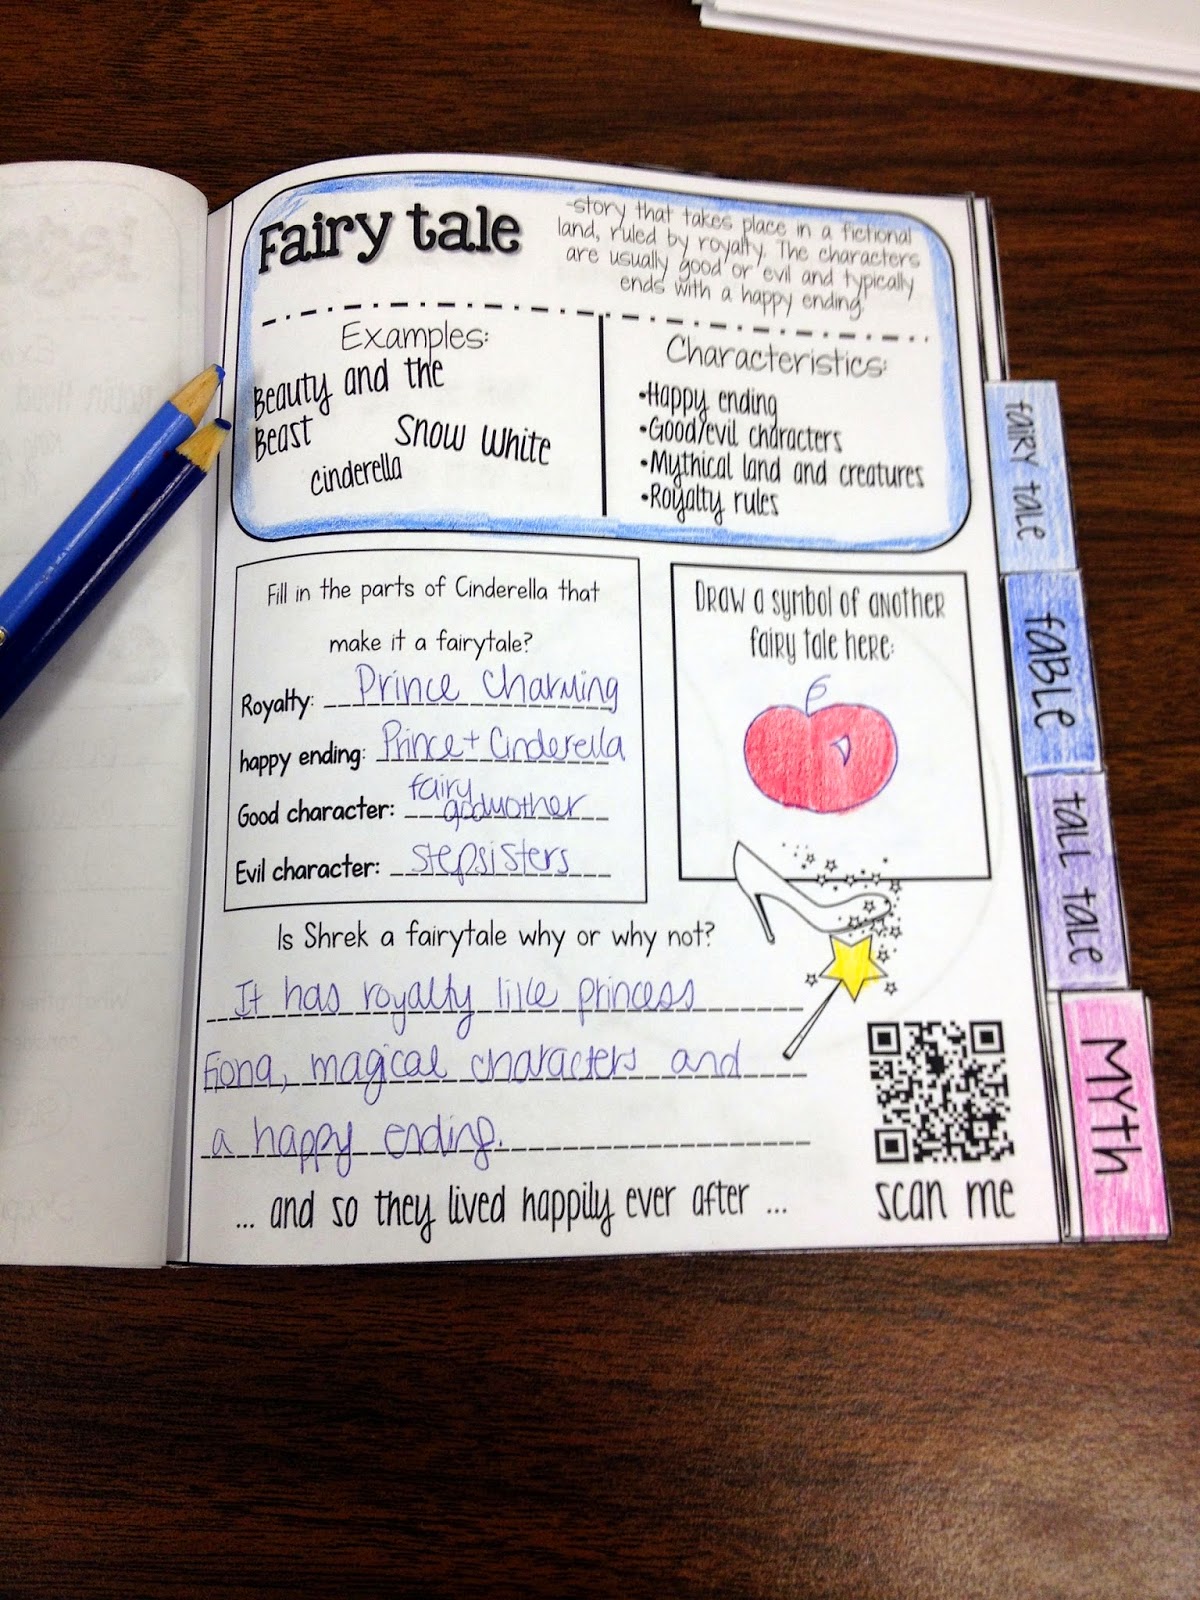 Fairy tale
-story that takes place in a fictional
land, ruled by royalty. The characters
are usually good or evil and typically
ends with a happy ending.
Examples:
Beauty and the
Beast
Snow White
cinderella
Characteristics:
•Happy ending
•Good/evil characters
•Mythical land and creatures
•Royalty rules
Fill in the parts of Cinderella that
make it a fairytale?
Royalty: Prince Charming
happy ending: Prince + Cinderella
Good character: fairy godmother
Evil character: stepsisters
Draw a symbol of another
fairy tale here:
Is Shrek a fairytale why or why not?
It has royalty like princess
Fiona, magical characters and
a happy ending.
... and so they lived happily ever after ...
scan me
fairy tale
fable
tall tale
Myth